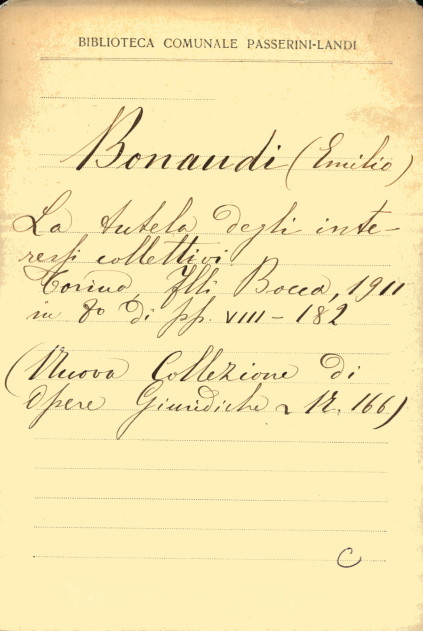 BIBLIOTECA COMUNALE PASSERINI-LANDI
Bonaudi (Emilio)
La tutela degli inte-
ressi collettivi.
Torino, Flli Bocca, 1911
in 8° di pp. VIII-182
(Nuova Collezione di
Opere Giuridiche N. 166)
C